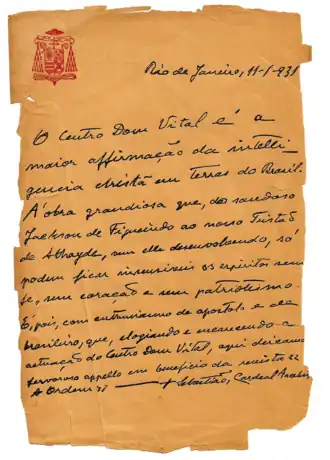 Rio de Janeiro, 11-1-931
O Centro Dom Vital é a
maior affirmação da intelli-
gencia christã em terras do Brasil.
A obra grandiosa que, do saudoso
Jackson de Figueiredo ao nosso Tristão
de Athayde, vem elle desenvolvendo, só
podem ficar insensiveis os espiritos sem
fé, sem coração e sem patriotismo.
É, pois, com enthusiasmo de apostolo e de
brasileiro, que, elogiando e encarecendo a
actuação do Centro Dom Vital, aqui deixamos
fervoroso appello em beneficio da revista
"A Ordem".
Sebastião, Cardeal